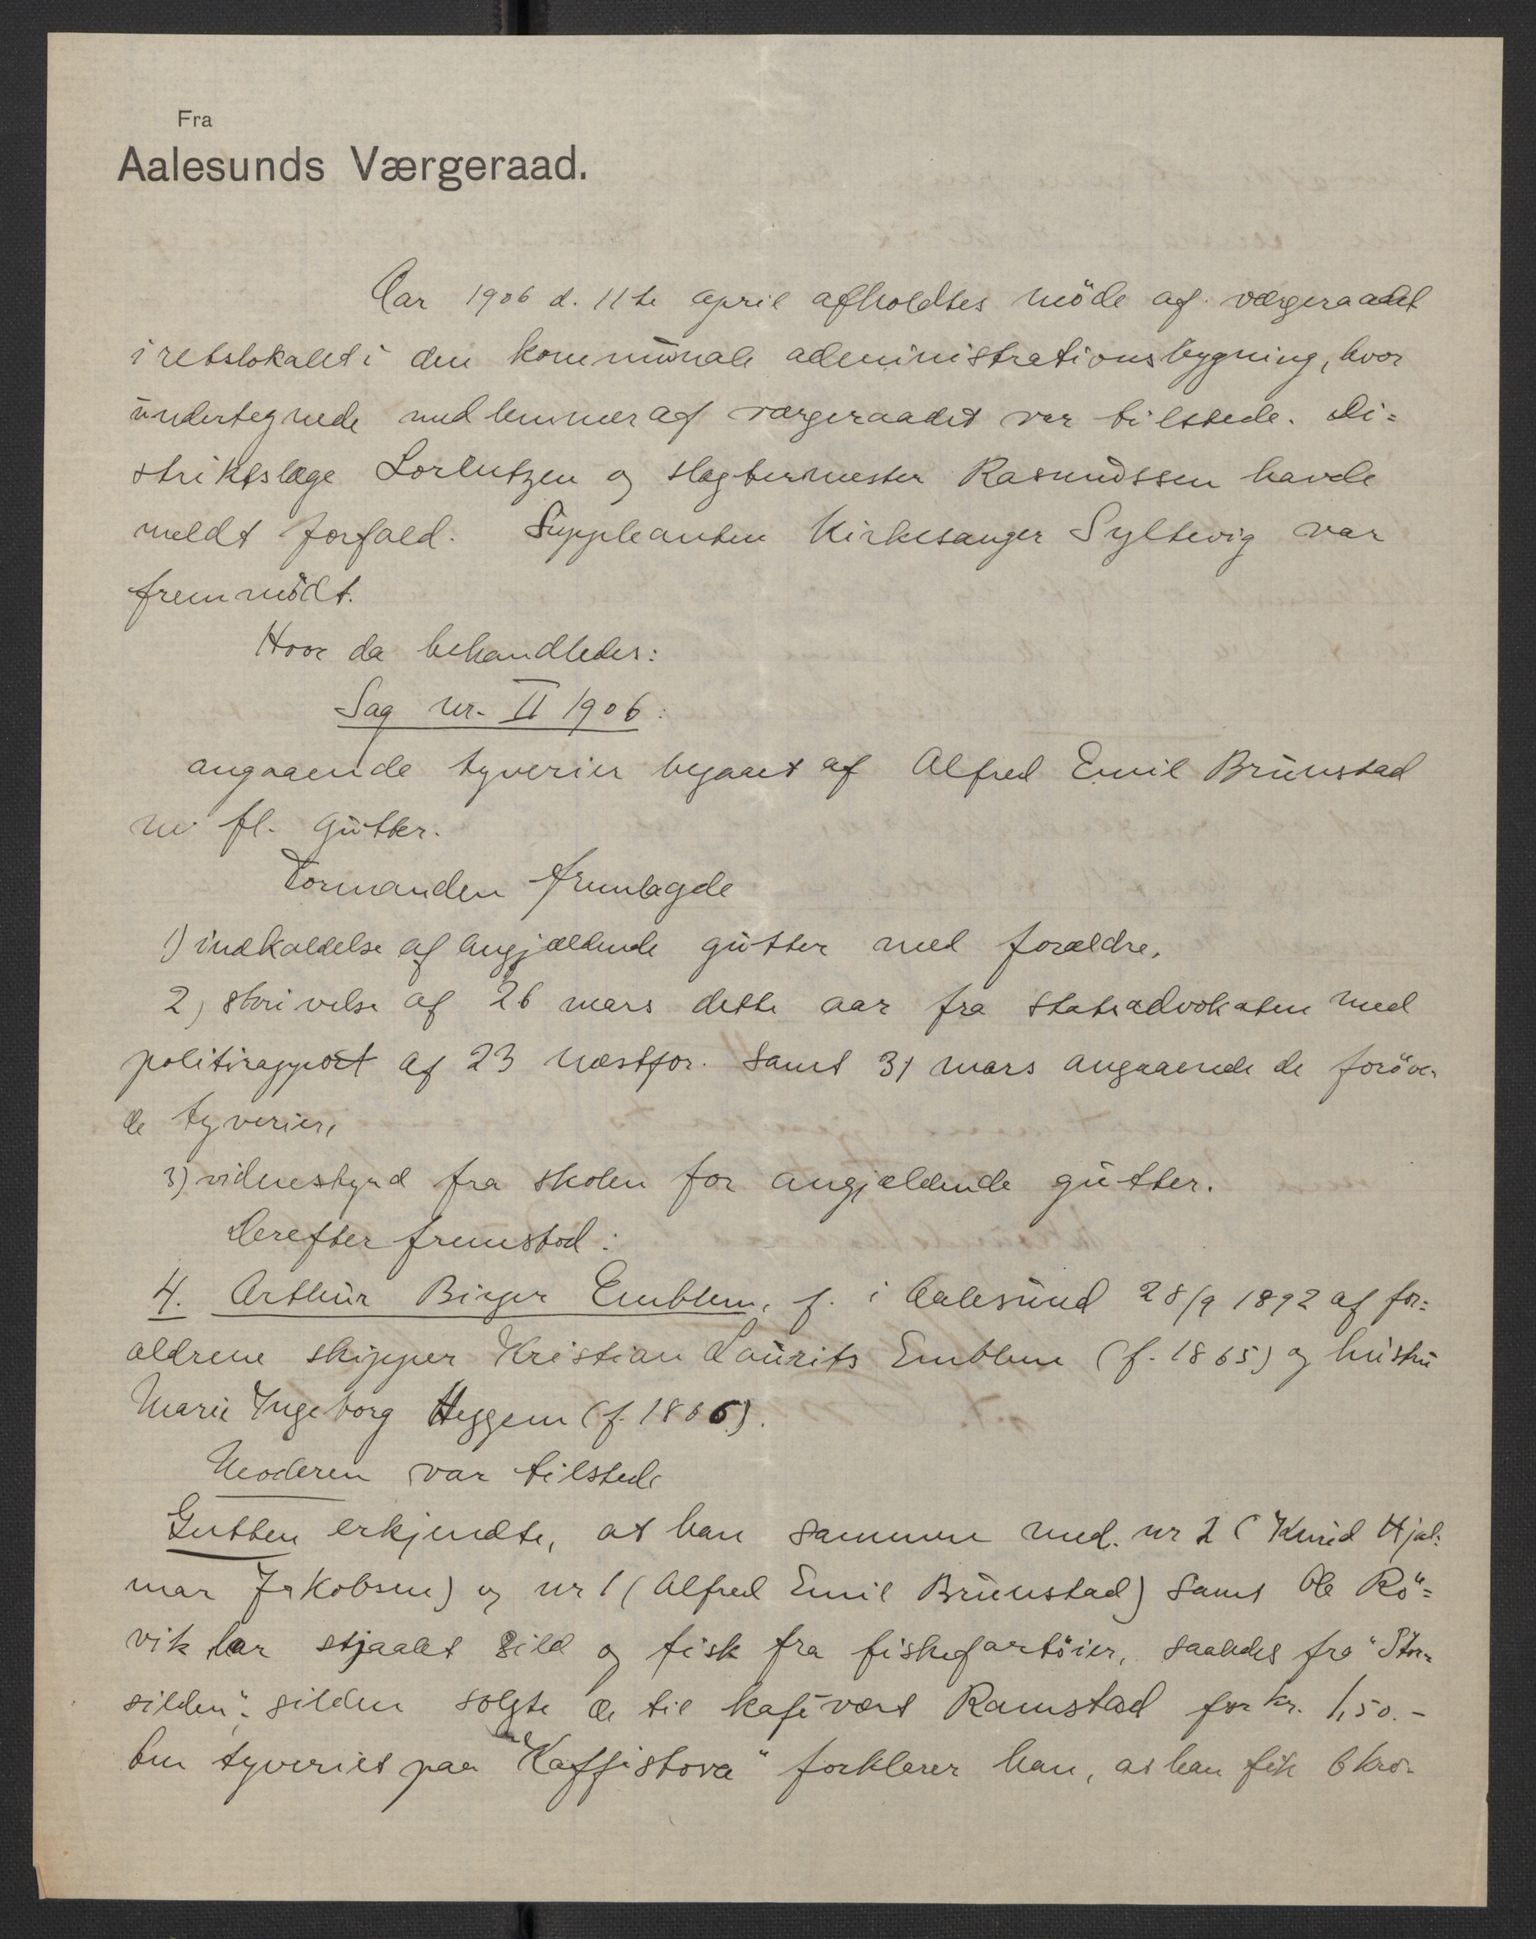 Fra
Aalesunds Værgeraad.
Aar 1906 d. 11te april afholdtes möde af værgeraadet
i retslokalet i den kommunale administrationsbygning, hvor
undertegnede medlemmer af værgeraadet var tilstede. Di=
striktslæge Lorentzen og slagtermester Rasmussen havde
meldt forfald. Suppleanten Kirkesanger Syltevig var
fremmödt.
Hvor da behandledes:
Sag nr. II 1906:
angaaende tyverier begaaet af Alfred Emil Brunstad
m fl. gutter.
Formanden fremlagde
1) indkaldelse af angjældende gutter med forældre,
2) skrivelse af 26 mars dette aar fra statsadvokaten med
politirapport af 23 næstfor. samt 31 mars angaaende de foröve-
de tyverier,
3) vidnesbyrd fra skolen for angjældende gutter.
Derefter fremstod:
4. Arthur Birger Emblem, f. i Aalesund 28/9 1892 af for=
ældrene skipper Kristian Laurits Emblem (f. 1865) og hustru
Marie Ingeborg Heggem (f. 1866).
Moderen var tilstede
Gutten erkjendte, at han sammen med nr 2 (Knud Hjal-
mar Jakobsen) og nr 1 (Alfred Emil Brunstad) samt Ole Rö=
vik har stjaalet sild og fisk fra fiskefartöier, saaledes fra "Stor=
silden", silden solgte de til kafévært Ramstad for kr. 1,50.-
Om tyveriet paa "Kaffistova" forklarer han, at han fik 6 kro-